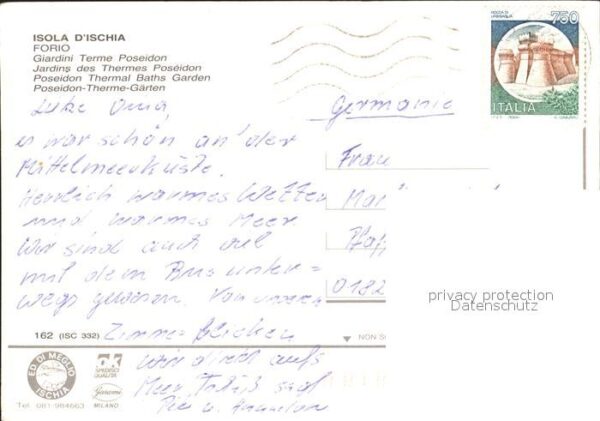 ISOLA D'ISCHIA
FORIO
Giardini Terme Poseidon
Jardins des Thermes Poséidon
Poseidon Thermal Baths Garden
Poseidon-Therme-Gärten
ROCCA DI
URBISAGLIA
750
ITALIA
Germania
Liebe Oma,
es war schön an der
Mittelmeerküste.
Herrlich warmes Wetter
und warmes Meer
Wir sind auch viel
mit dem Bus unter=
wegs gewesen. Von unserem
Zimmer blicken
wir direkt aufs
Meer
Frau
Ma
Pfa
0182
privacy protection
Datenschutz
162 (ISC 332)
NON S
ED. DI MEGLIO
ISCHIA
Tel. 081-984663
SPEDISCI
QUALITÀ
MILANO